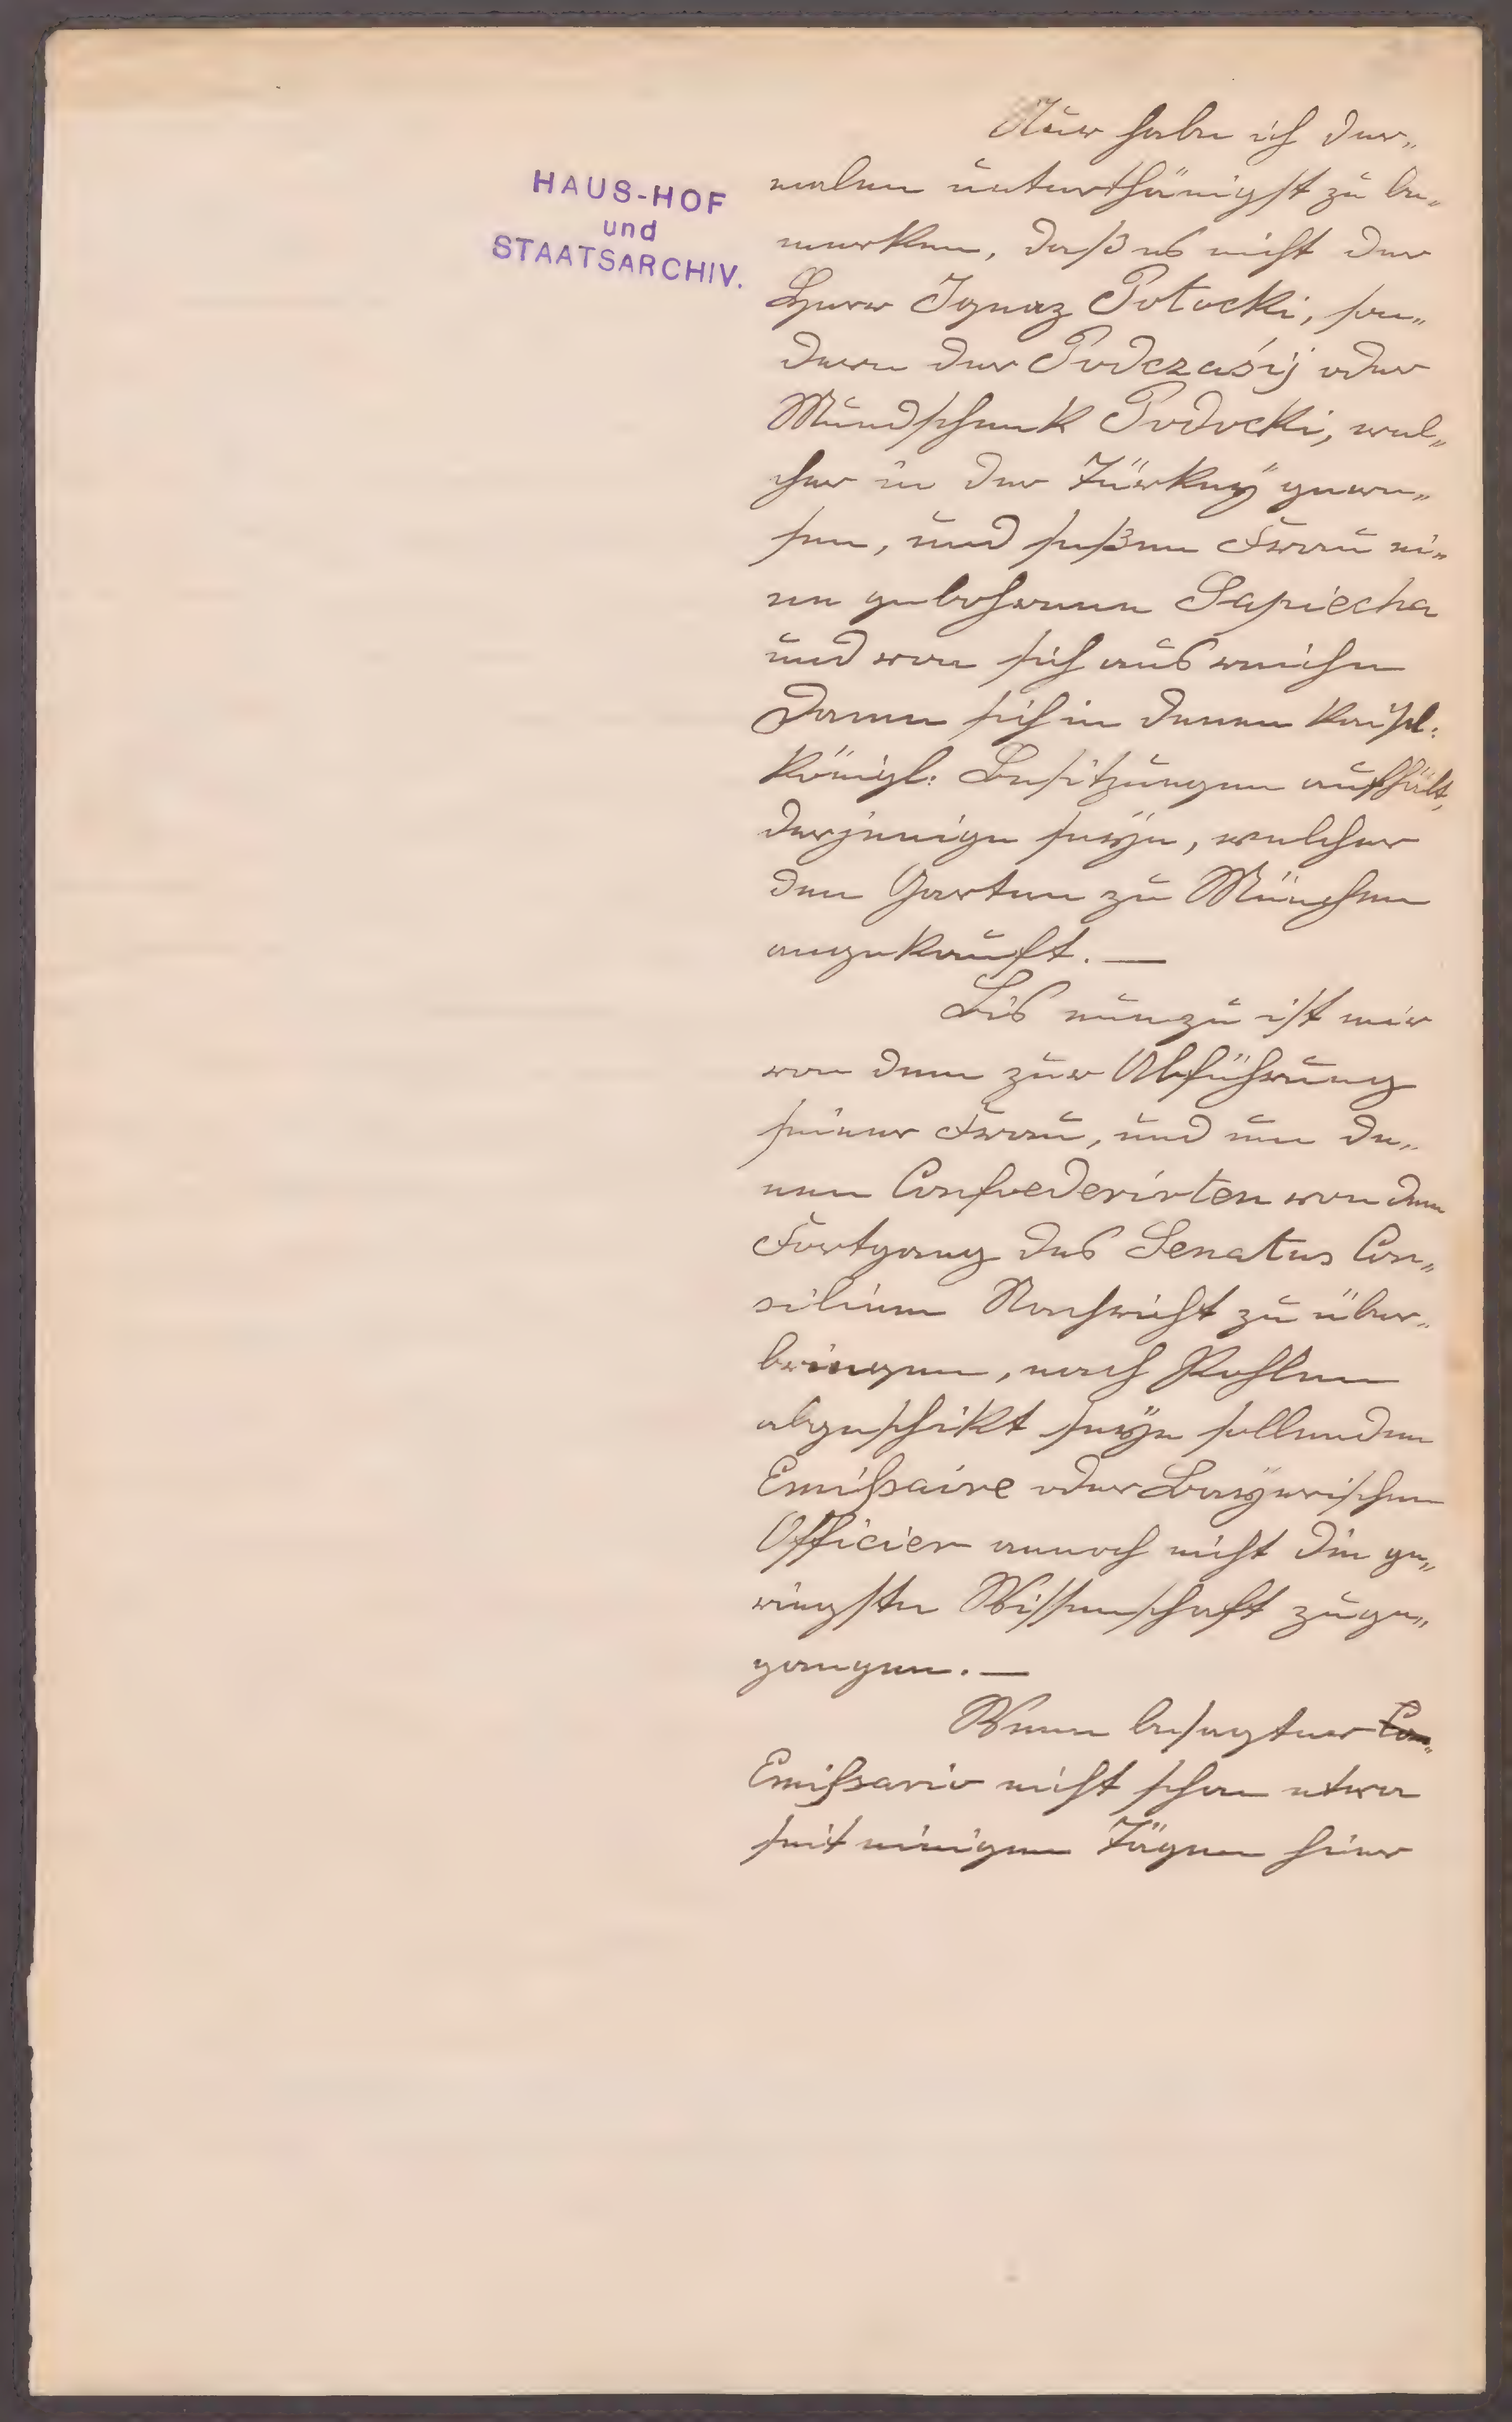 HAUS-HOF
und
STAATSARCHIV.
Nur habe ich der„
malen unterthänigst zu be„
merken, daß es nicht der
Herr Ignaz Potocki, son„
dern der Podczasÿ oder
Mundschenk Podocki, wel„
cher in der Türkeÿ gewe„
sen, und seßen Frau ei„
ne gebohrene Sapiecha
und von sich ausweiche
Damm sich in denen kaÿsl:
königl: Besitzungen aufhält,
derjenige seÿe, welcher
den Garten zu München
angekauft. —
Bis nunzu ist mir
von dem zur Abführung
seiner Frau, und um de„
nen Confoederirten von dem
Fortgang des Senatus Con„
silium Nachricht zu über„
bringen, nach Pohlen
abgeschikt seÿe sollenden
Emißaire oder Baÿerischen
Officier annoch nicht die ge„
ringste Wissenschaft zuge„
gangen. —
Wenn besagter
Emißario nicht schon etwa
seit einigen Tägen hier